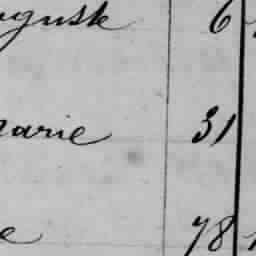 uguste 6
Marie 31
e 78